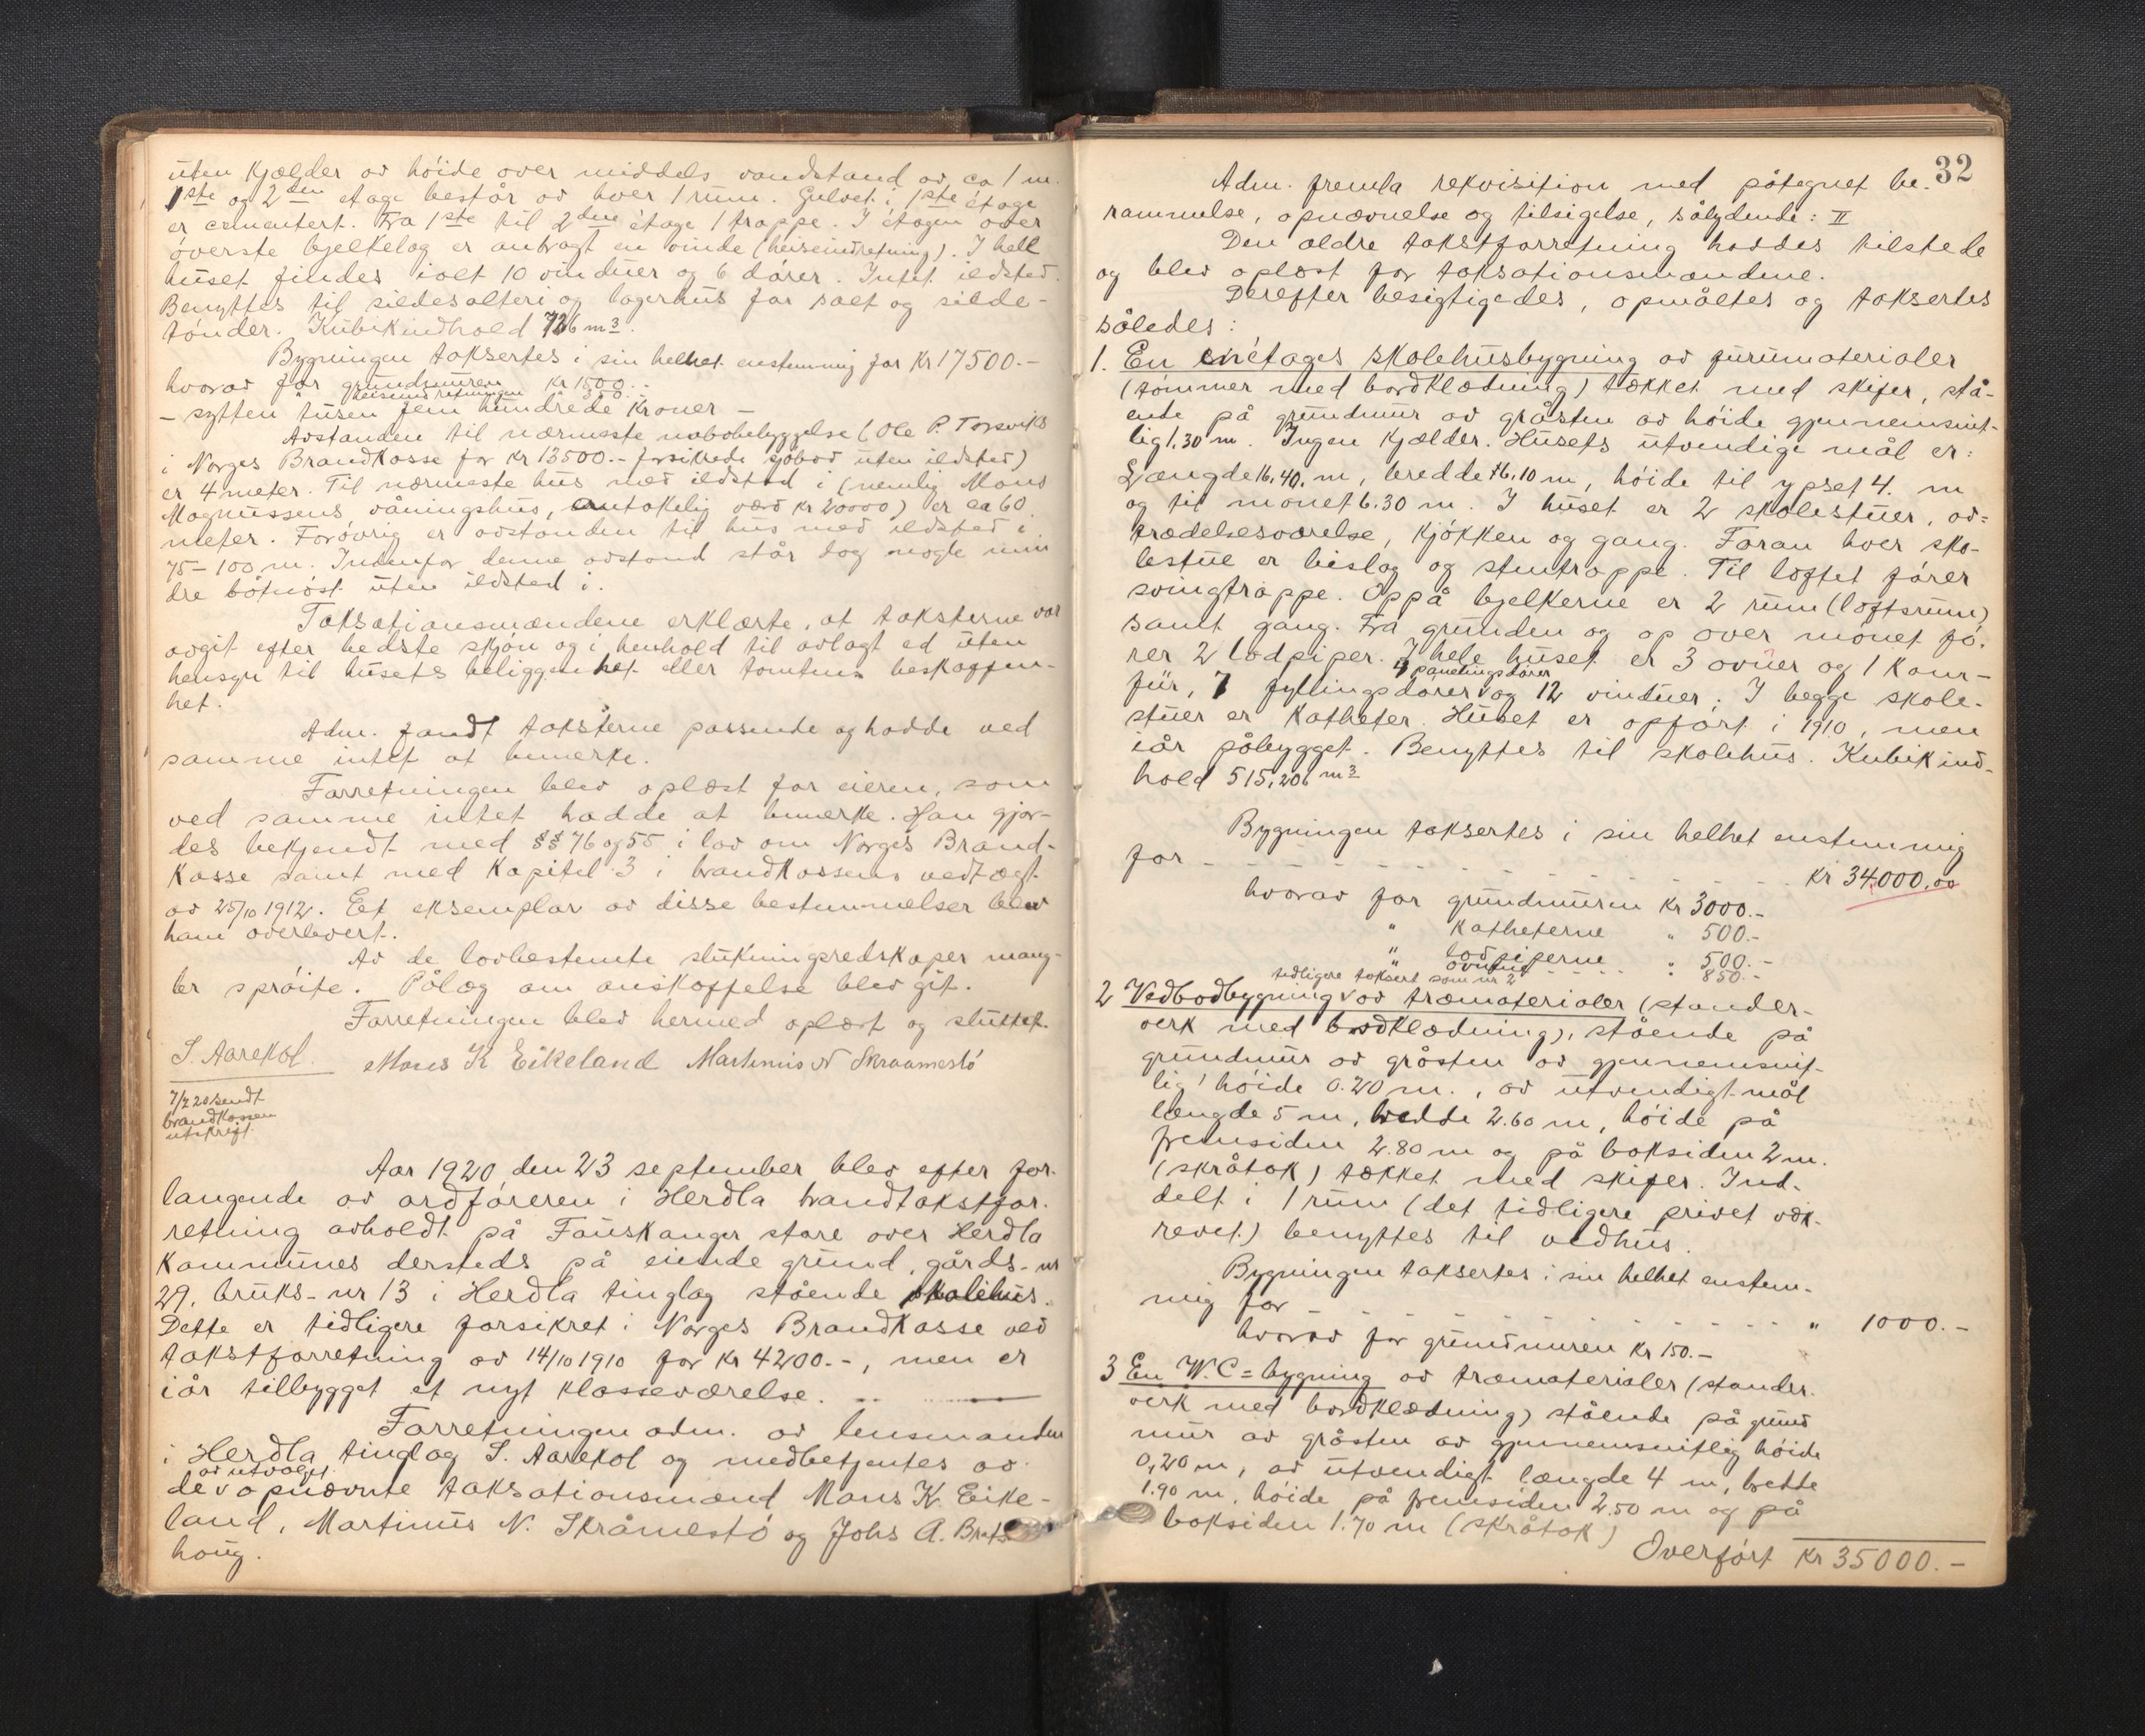 uten kjælder av høide over middels vandstand av ca 1 m.
1ste og 2den etage består av hver 1 rum. Gulvet i 1ste étage
er cementert. Fra 1ste til 2den étage 1 trappe. I étagen over
øverste bjelkelag er anbragt en vinde (heiseindretning). I hele
huset findes ialt 10 vinduer og 6 dører. Intet ildsted.
Benyttes til sildesalteri og lagerhus for salt og silde-
tønder. Kubikindhold 726 m3.
Bygningen taksertes i sin helhet enstemmig for kr 17500.-
hvorav for grundmuren kr 1500.-
" " heiseindretningen " 350.-
- sytten tusen fem hundrede kroner -
Avstanden til nærmeste nabobebyggelse (Ole P. Torsviks
i Norges Brandkasse for kr 13500.- forsikrede sjøbod uten ildsted)
er 4 meter. Til nærmeste hus med ildsted i (nemlig Mons
Magnussens våningshus, antakelig værd kr 20000) er ca 60
meter. Forøvrig er avstanden til hus med ildsted i
75-100 m. Indenfor denne avstand står dog nogle min
dre båtnøst uten ildsted i.
Taksationsmændene erklærte, at taksterne var
avgit efter bedste skjøn og i henhold til avlagt ed uten
hensyn til husets beliggenhet eller tomtens beskaffen-
het.
Adm. fandt taksterne passende og hadde ved
samme intet at bemerke.
Forretningen blev oplæst for eieren, som
ved samme intet hadde at bemerke. Han gjor-
des bekjendt med §§ 76 og 55 i lov om Norges Brand-
kasse samt med kapitel 3 i brandkassens vedtægt
av 25/10 1912. Et eksemplar av disse bestemmelser blev
ham overlevert.
Av de lovbestemte slukningsredskaper mang-
ler sprøite. Pålæg om anskaffelse blev git.
Forretningen blev hermed oplæst og sluttet.
S. Aarekol Mons K Eikeland Martinus N Skraamestø
7/7 20 sendt
brandkassen
utskrift.
Aar 1920 den 23 september blev efter for-
langende av ordføreren i Herdla brandtakstfor-
retning avholdt på Fauskanger store over Herdla
Kommunes dersteds på eiende grund, gårds-nr
29, bruks-nr 13 i Herdla tinglag stående skolehus.
Dette er tidligere forsikret i Norges Brandkasse ved
takstforretning av 14/10 1910 for kr 4200.-, men er
iår tilbygget et nyt klasseværelse.
Forretningen adm. av lensmanden
i Herdla tinglag S. Aarekol og medbetjentes av
av utvalget
de v opnævnte taksationsmænd Mons K. Eike-
land, Martinus N. Skråmestø og Johs A. Brat
houg.
32
Adm. fremla rekvisition med påtegnet be-
rammelse, opnævnelse og tilsigelse, sålydende: II
Den ældre takstforretning haddes tilstede
og blev oplæst for taksationsmændene.
Derefter besigtigedes, opmåltes og taksertes
således:
1. En enétages skolehusbygning av furumaterialer
(tømmer med bordklædning) tækket med skifer, stå-
ende på grundmur av gråsten av høide gjennemsnit-
lig 1.30 m. Ingen kjælder. Husets utvendige mål er:
Længde 16,40. m, bredde 6,10 m, høide til ypset 4. m
og til mønet 6,30 m. I huset er 2 skolestuer, av-
trædelsesværelse, kjøkken og gang. Foran hver sko-
lestue er bislag og stentrappe. Til loftet fører
svingtrappe. Oppå bjelkerne er 2 rum (loftsrum)
samt gang. Fra grunden og op over mønet fø-
rer 2 lodpiper. I hele huset er 3 ovner og 1 kom-
4 panelingsdører
fur, 7 fyllingsdører v og 12 vinduer. I begge skole-
stuer er katheter. Huset er opført i 1910, men
iår påbygget. Benyttes til skolehus. Kubikind-
hold 515,206 m3
Bygningen taksertes i sin helhet enstemmig
for - - - - - - - - - kr 34.000,00
hvorav for grundmuren kr 3000.-
" katheterne " 500.-
" lodpiperne " 500.-
" ovnene - - - " 850.-
tidligere taksert som nr 2
2 Vedbodbygning v av træmaterialer (stander-
verk med bordklædning), stående på
grundmur av gråsten av gjennemsnit-
lig høide 0.20 m., av utvendigt mål
længde 5 m, bredde 2.60 m, høide på
fremsiden 2.80 m og på baksiden 2 m.
(skråtak) tækket med skifer. Ind-
delt i 1 rum (det tidligere privet væk-
revet) benyttes til vedhus.
Bygningen taksertes i sin helhet enstem-
mig for - - - - - - - - - " 1000.-
hvorav for grundmuren kr 150.-
3 En W.C=bygning av træmaterialer (stander-
verk med bordklædning) stående på grund
mur av gråsten av gjennemsnitlig høide
0,20 m, av utvendigt længde 4 m, bredde
1.90 m, høide på fremsiden 2.50 m og på
baksiden 1.70 m (skråtak)
Overført kr 35000.-